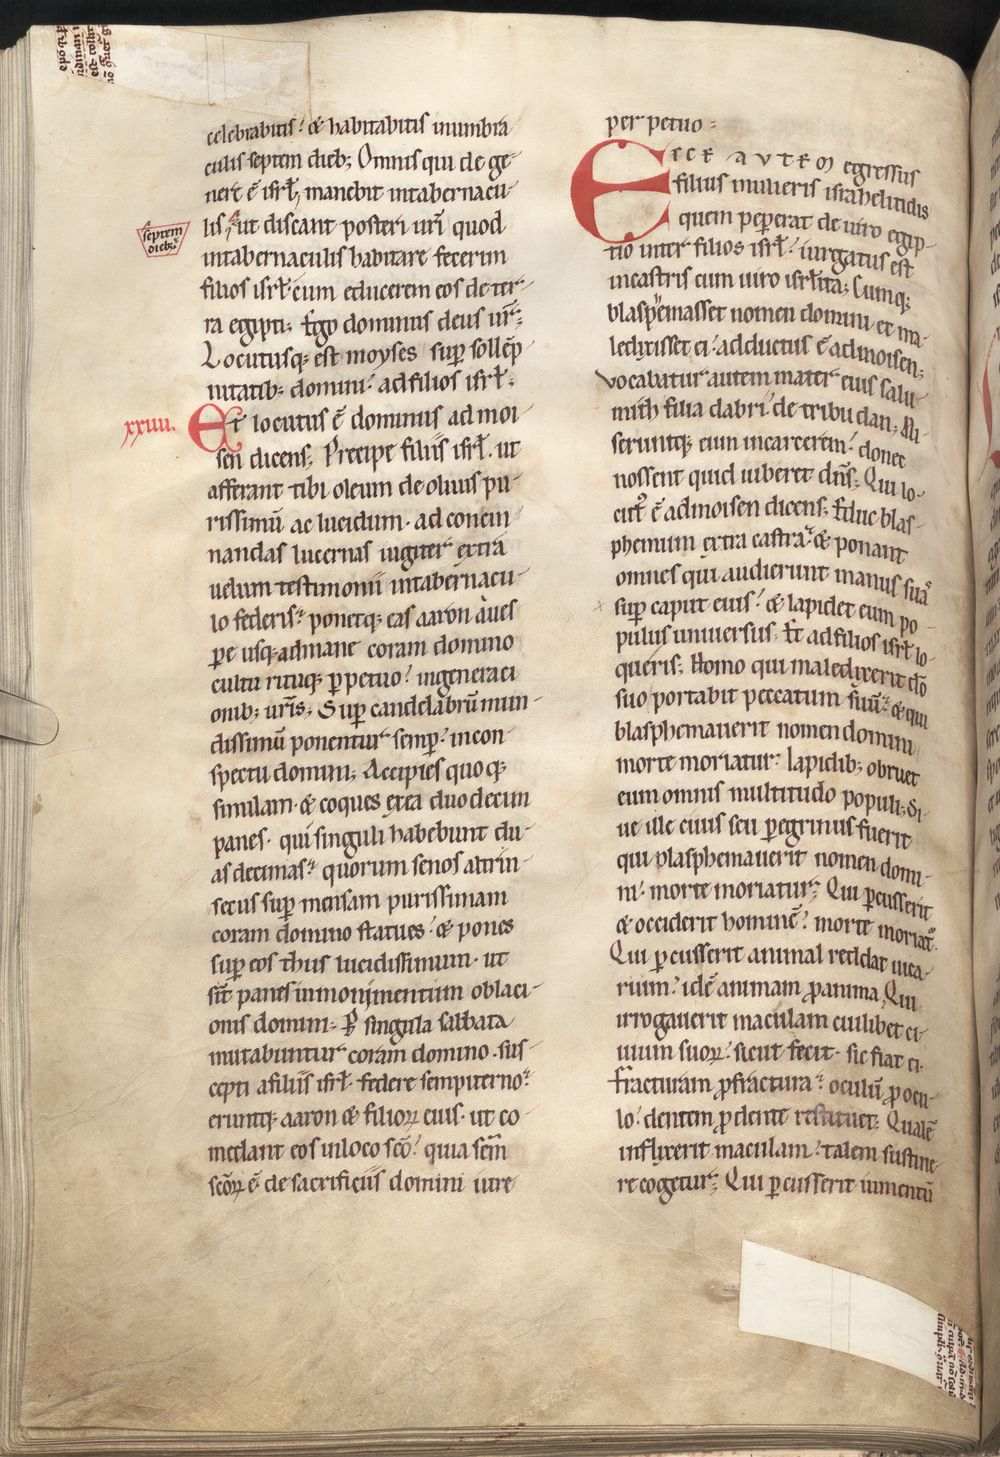 celebrabitis! & habitabitis inumbra
culis septem dieb; Omnis qui de ge-
nere ē isrl̄, manebit intabernacu-
lis ut discant posteri urī quod
septem
dieb;
intabernaculis habitare fecerim
filios isrl̄ cum educerem eos de ter-
ra egipti; Ego dominus deus ur̄;
Locutusq; est moyses sup̄ sollēp
nitatib; domini! ad filios isrl̄;
xxiiii.
Et locutus ē dominus ad moi
sen dicens; Precipe filiis isrl̄. ut
afferant tibi oleum de oliuis pu-
rissimū ac lucidum. ad concin
nandas lucernas iugiter extra
uelum testimonii intabernacu-
lo federis; ponetq; eas aaron aues
ꝑe usq; admane coram domino
cultu rituq; ꝑpetuo! ingeneraci
onib; ur̄is; Sup̄ candelabrū mun-
dissimū ponentur semp̄! incon-
spectu domini; Accipies quoq;
similam. & coques exea duodecim
panes. qui singuli habebunt du-
as decimas; quorum senos altrin-
secus sup̄ mensam purissimam
coram domino statues. & pones
sup̄ eos thus lucidissimum. ut
sīt panes inmonimentum oblaci-
onis domini; P singula sabbata
mutabuntur coram domino. sus-
cepti afiliis isrl̄. federe sempiterno;
eruntq; aaron & filioꝝ eius. ut co-
medant eos inloco scō! quia scm̄
scōꝝ ē de sacrificiis domini iure
perpetuo;
Ecce autem egressus
filius mulieris israhelitidis
quem peꝑerat de uiro egip-
tio inter filios isrl̄! iurgatus est
incastris cum uiro isrl̄ita; Cumq;
blasphemasset nomen domini et ma-
ledixisset ei! adductus ē admoisen;
vocabatur autem mater eius salu-
mith filia dabri! de tribu dan; Mi-
seruntq; eum incarcerem! donec
nossent quid iuberet dn̄s; Qui lo-
cut̄ ē admoisen dicens; Educ blas-
phemum extra castra; & ponant
omnes qui audierunt manus suā
sup̄ caput eius! & lapidet eum po-
pulus uniuersus; Et ad filios isrl̄ lo-
queris; Homo qui maledixerit dō
suo portabit peccatum suū; & qui
blasphemauerit nomen domini
morte moriatur; lapidib; obruet
eum omnis multitudo populi; Si-
ue ille ciuis seu ꝑegrinus fuerit
qui blasphemauerit nomen domi-
ni! morte moriatur; Qui ꝑcusserit
& occiderit hominē! morte moriat̄.
Qui ꝑcusserit animal reddat uica-
rium! idē animam ꝓ anima; Qui
irrogauerit maculam cuilibet ci-
uium suoꝝ! sicut fecit. sic fiat ei.
fracturam ꝓ fractura; oculū ꝓ ocu-
lo! dentem ꝓ dente restituet; Qualē
inflixerit maculam! talem sustine-
re cogetur; Qui ꝑcusserit iumentū